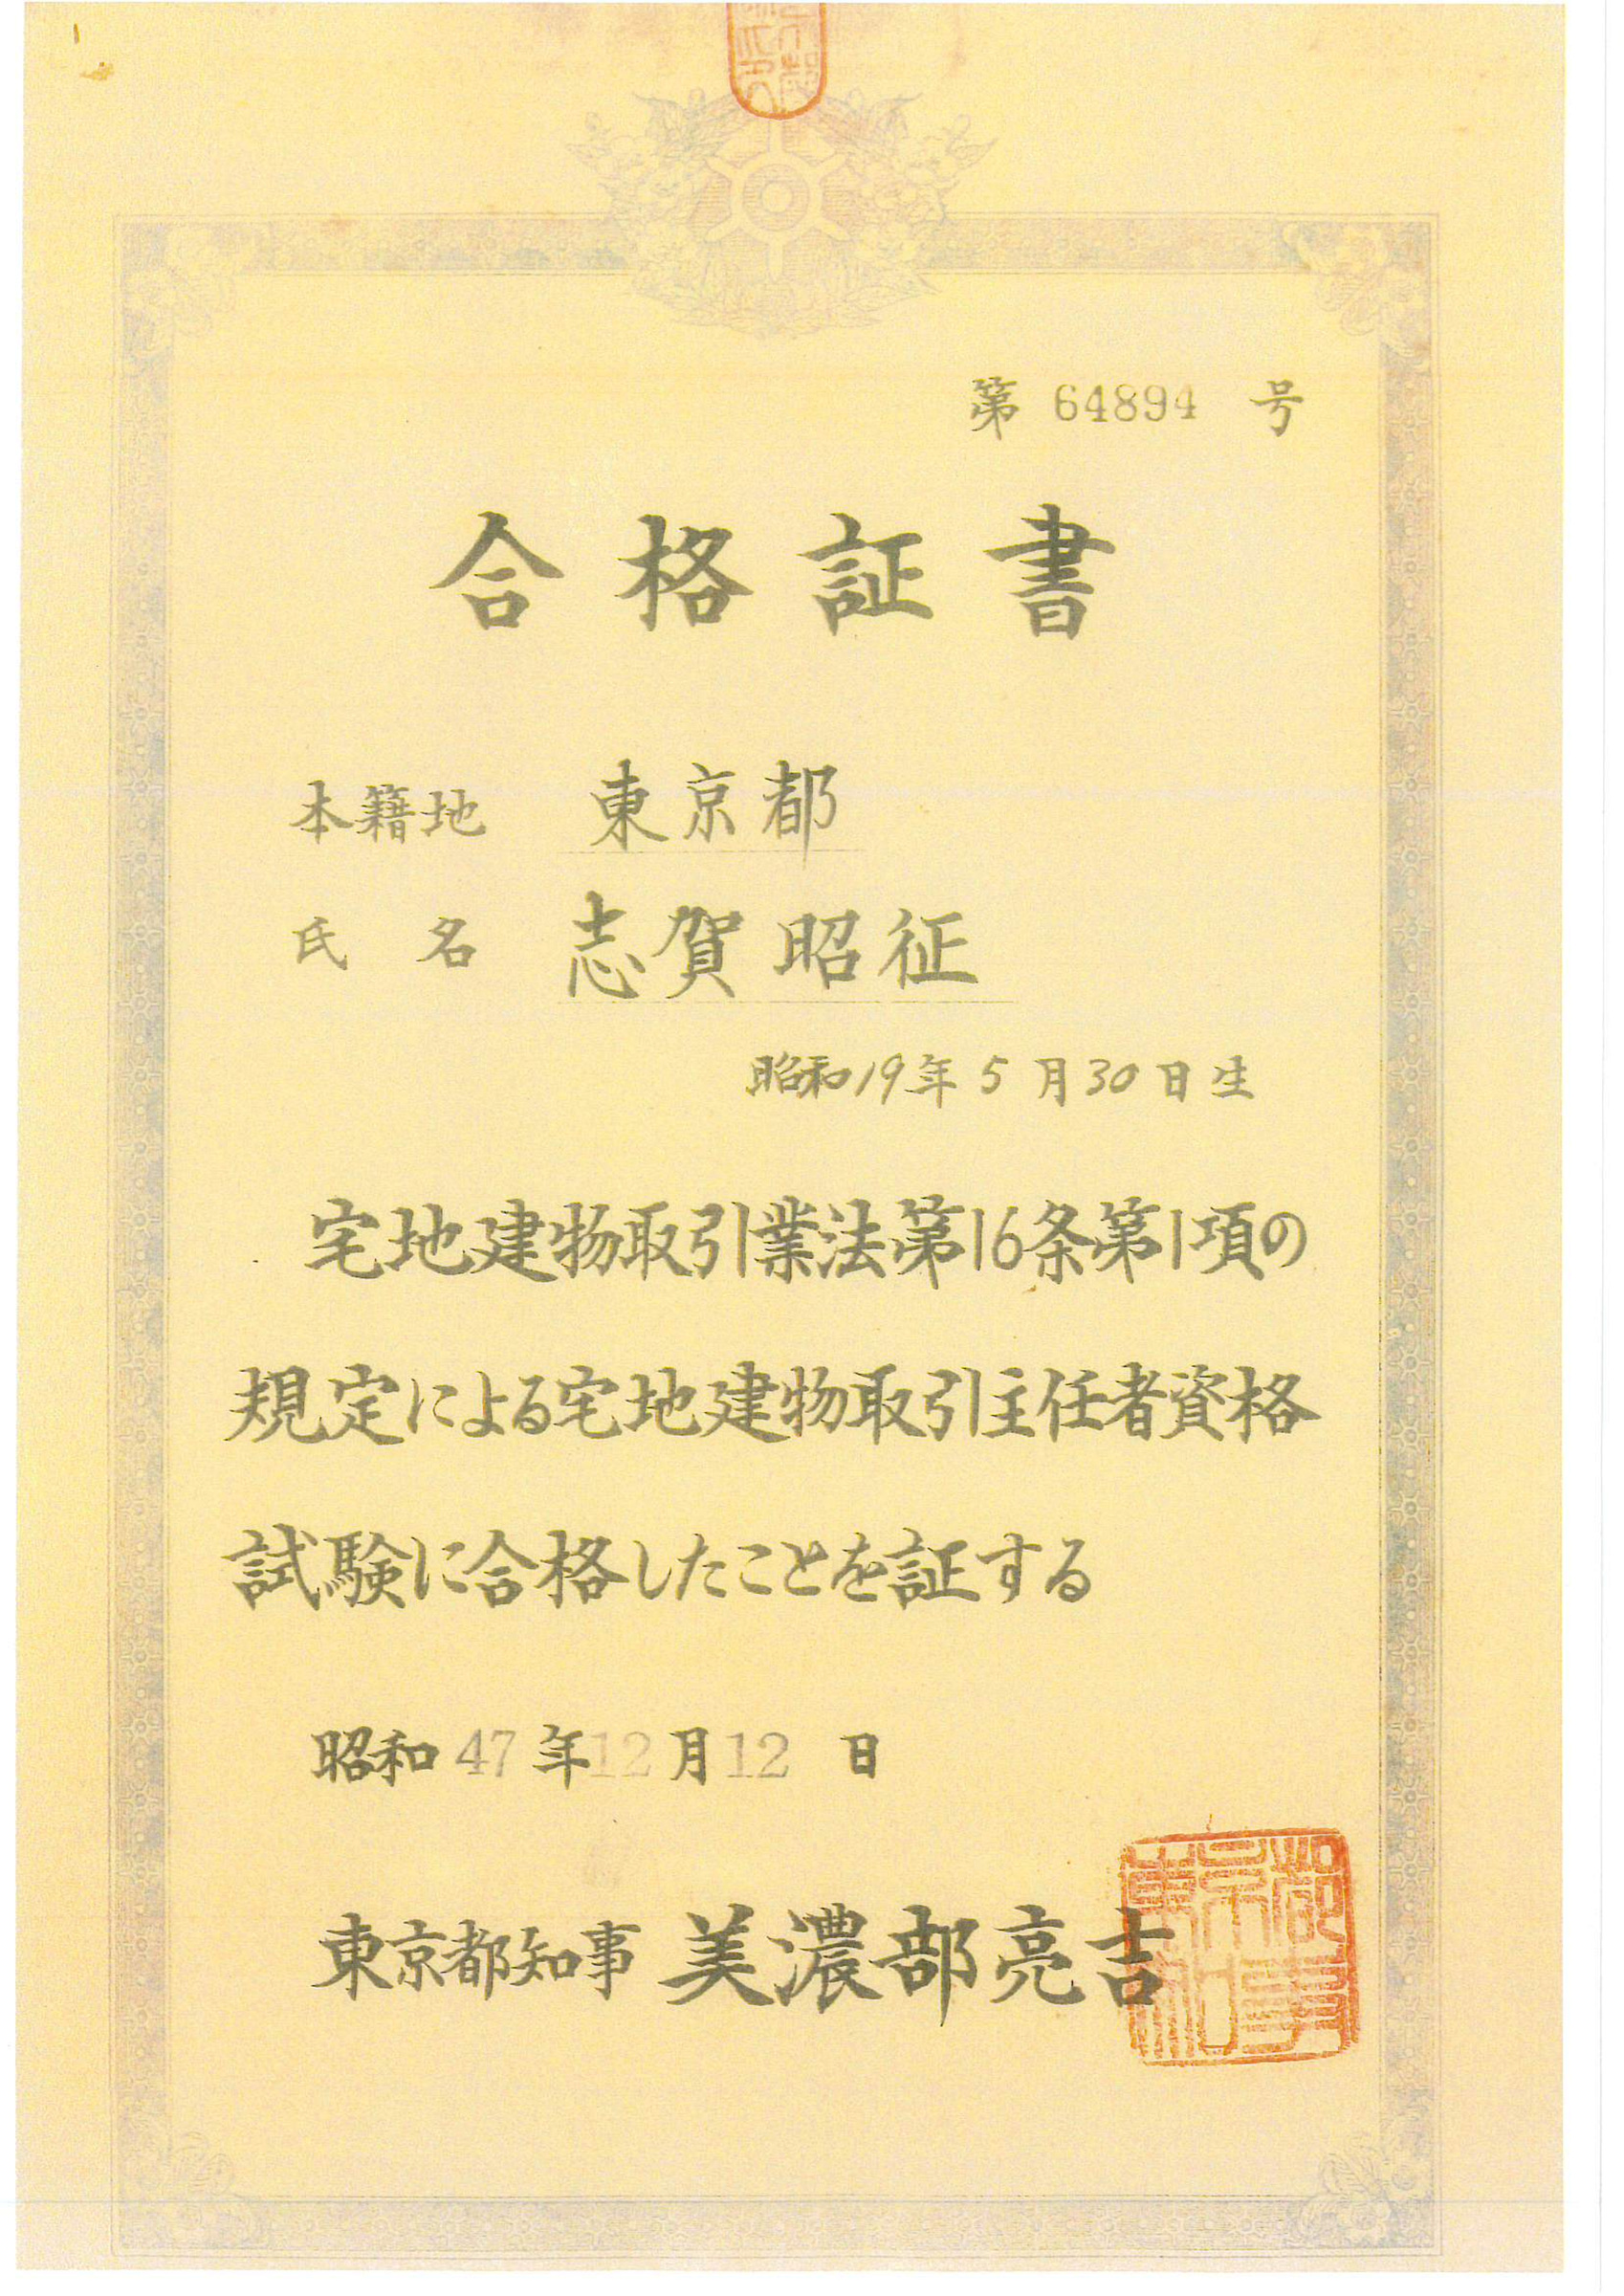 第 64894 号
合格証書
本籍地 東京都
氏名 志賀昭征
昭和19年5月30日生
宅地建物取引業法第16条第1項の
規定による宅地建物取引主任者資格
試験に合格したことを証する
昭和47年12月12日
東京都知事 美濃部亮吉